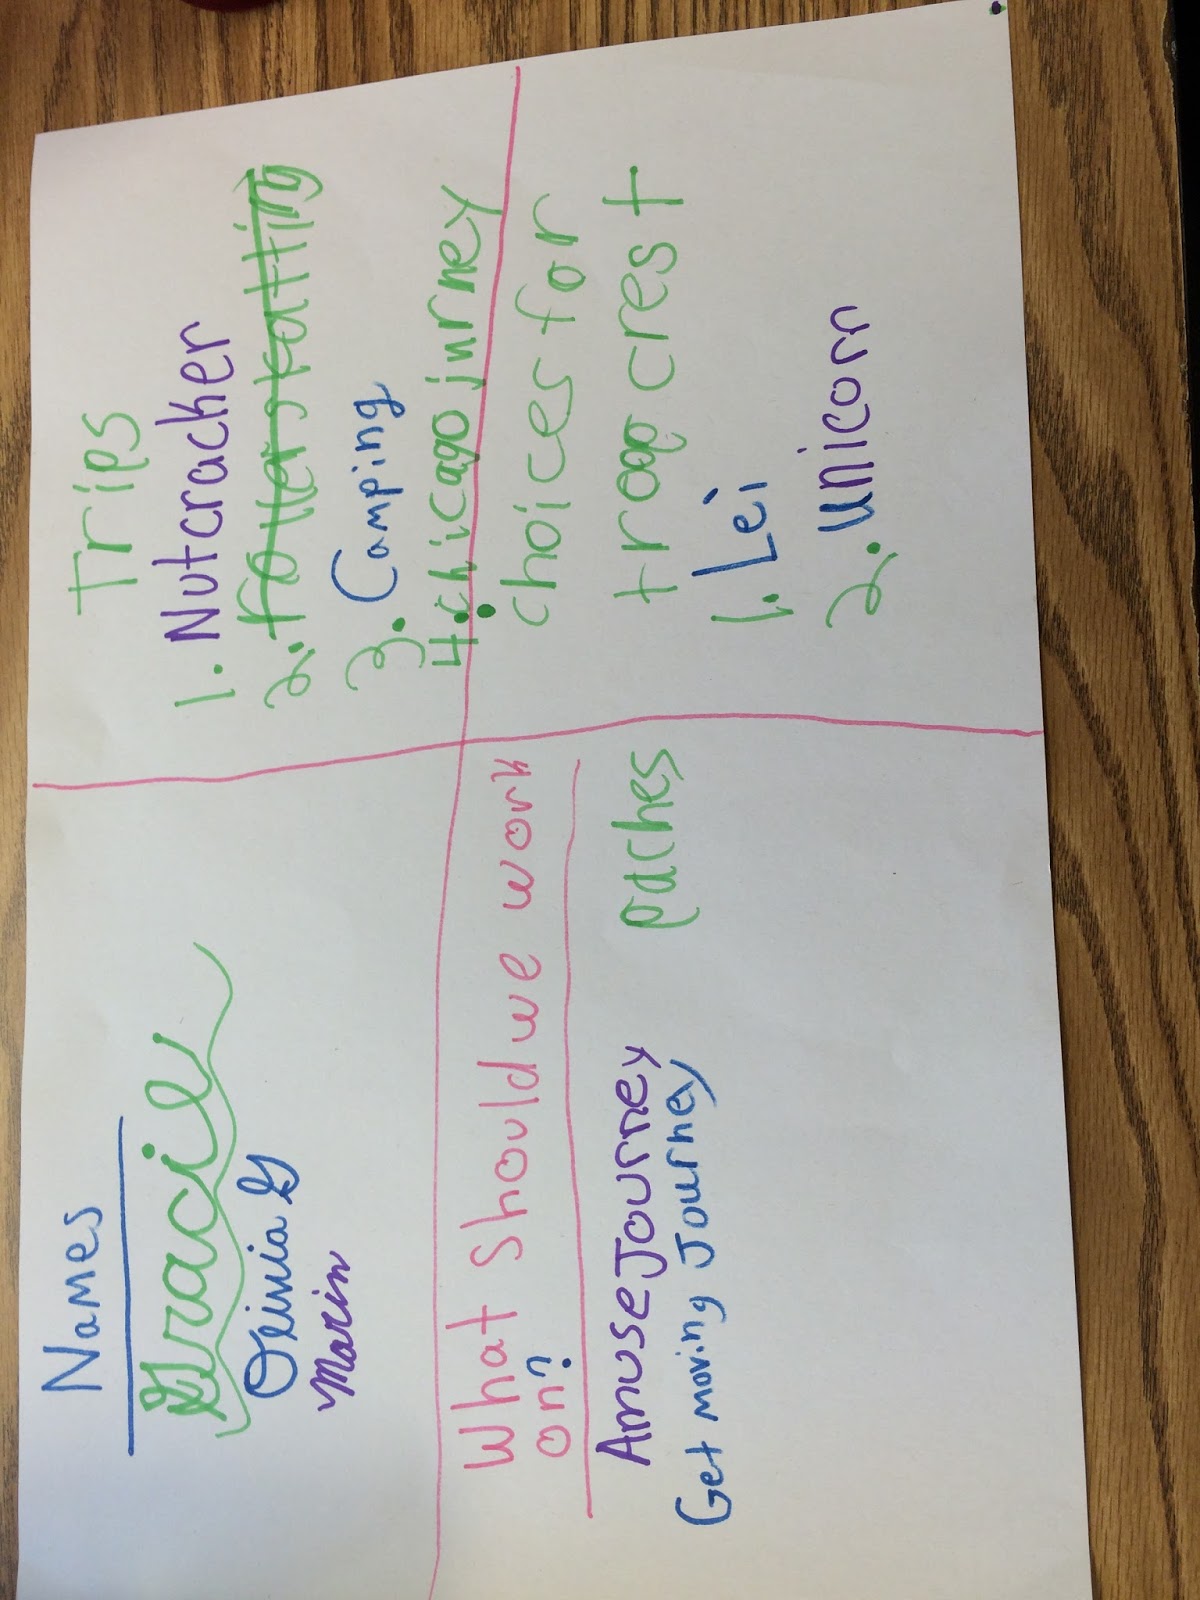 Names
Gracie
Olivia G
Marin
Trips
1. Nutcracker
2. rollerskatting
3. Camping
4. chicago jurney
What Should we work
on?
Amuse Journey
Get moving Journey
paches
choices for
troop crest
1. Lei
2. unicorn